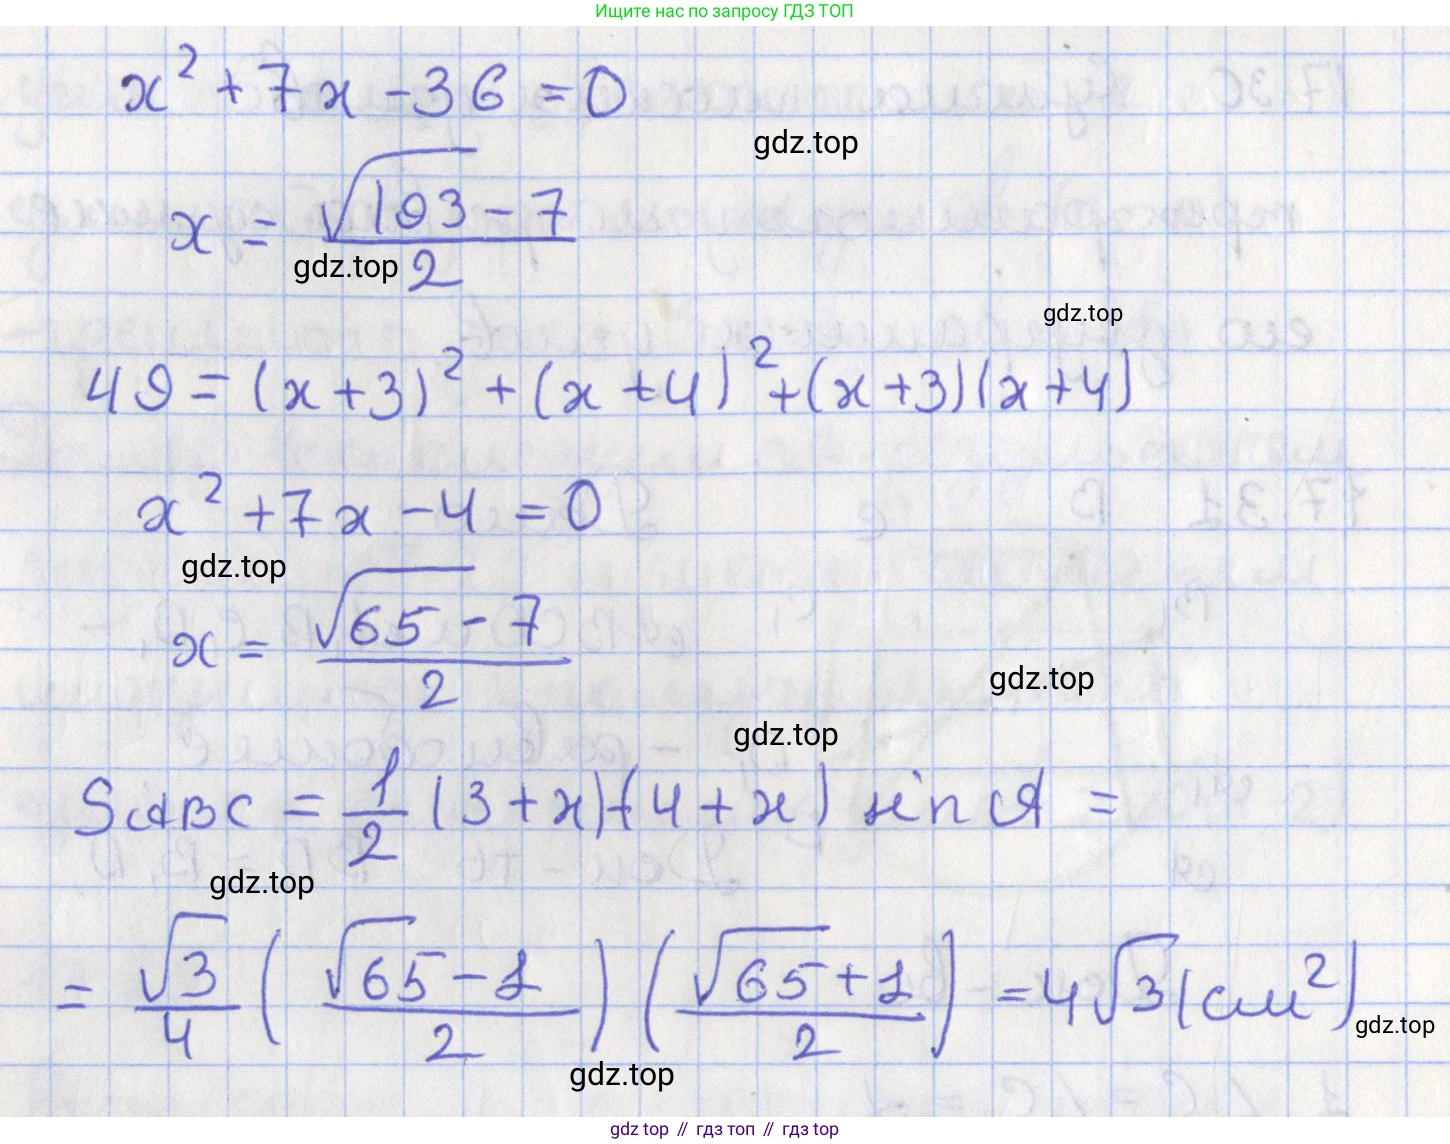 Ищите нас по запросу ГДЗ ТОП
x² + 7x - 36 = 0
gdz.top
x = (√193 - 7)/2
gdz.top
gdz.top
49 = (x+3)² + (x+4)² + (x+3)(x+4)
x² + 7x - 4 = 0
gdz.top
x = (√65 - 7)/2
gdz.top
gdz.top
SABC = 1/2 (3+x)(4+x) sin A =
gdz.top
= √3/4 ((√65 - 1)/2) ((√65 + 1)/2) = 4√3 (см²)
gdz.top
gdz.top
gdz top // гдз топ // гдз top